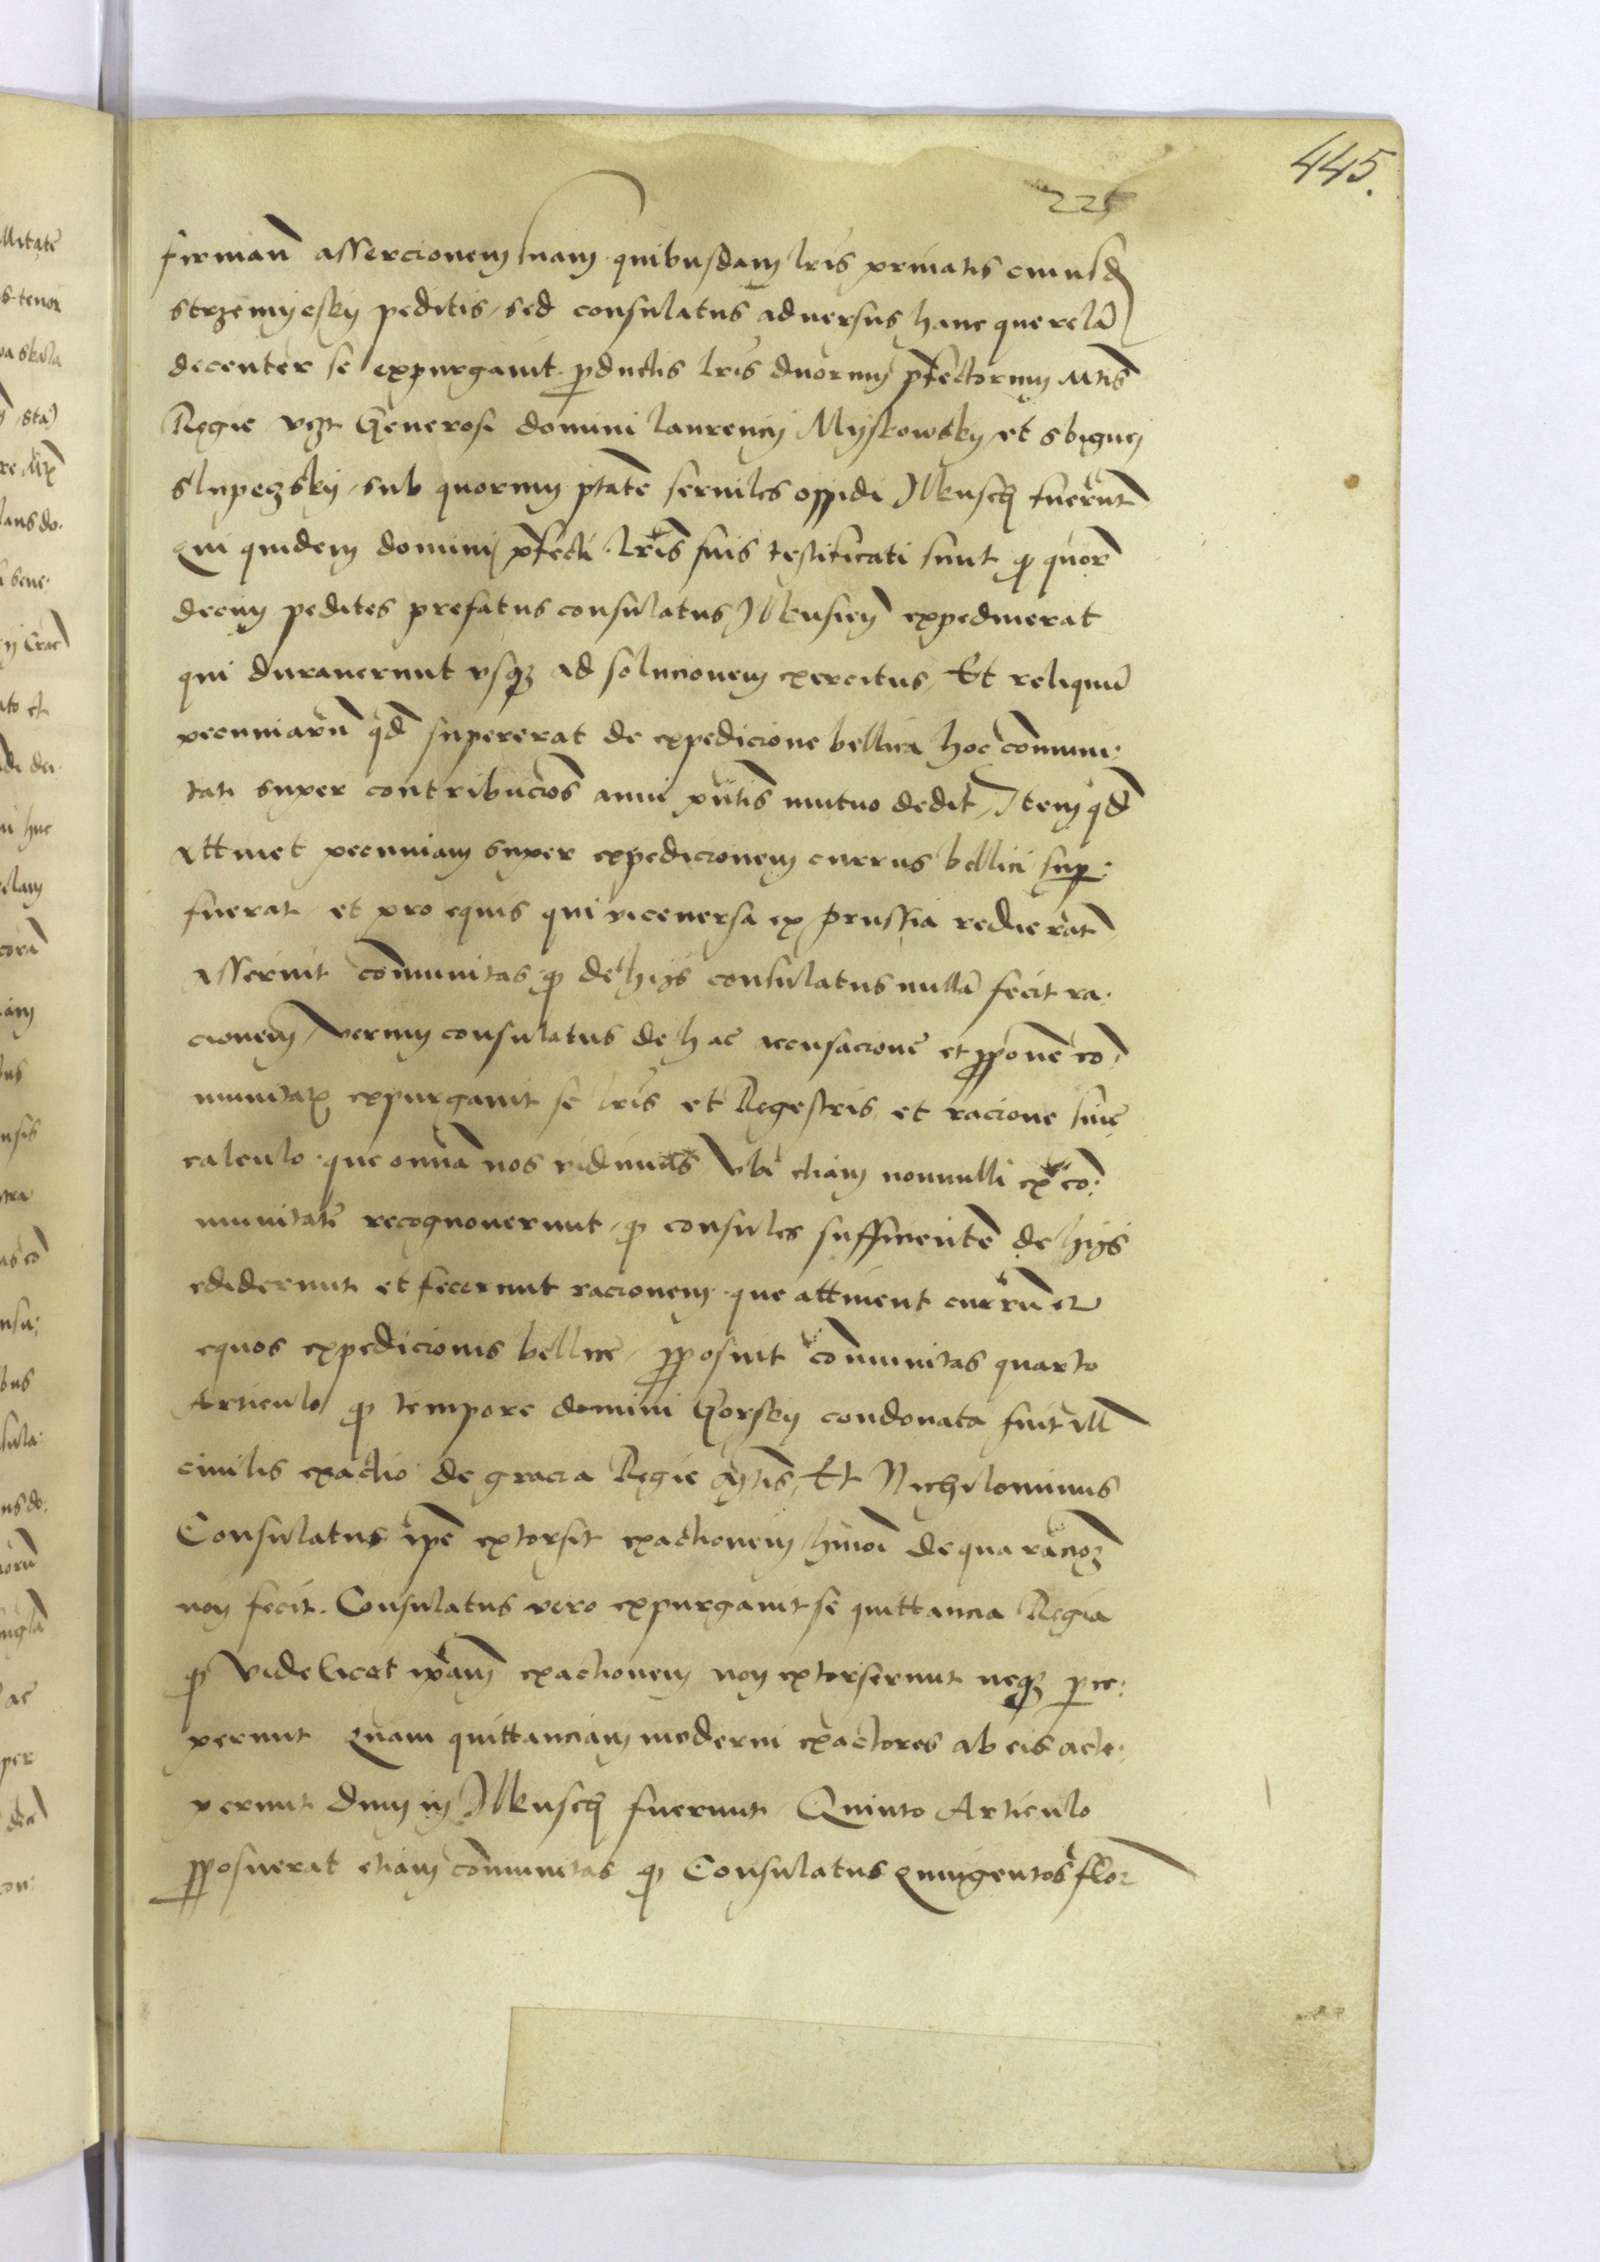 445.
225
firmañ assercionem suam quibusdam lris priuatis eiusd
strzemyesky peditis, sed consulatus aduersus hanc querelã
decenter se expurgauit productis lris duorum pfectorum Mtis
Regie vizt Generosi domini laurencij Myskowsky et sbignej
slupeczsky, sub quorum ptate seruiles oppidi Jlkusch fuerunt
Qui quidem dominj pfecti lris suis testificati sunt q quor
decem pedites prefatus consulatus Jlkusień expediuerat
qui durauerunt vsq ad solucionem exercitus, Et reliquũ
pecuniarũ qd supererat de expedicione bellica hoc cõmuni:
tati super contribucões anni pñtis mutuo dedit, Item qd
attinet pecuniam super expedicionem currus bellici sup:
fuerat et pro equis qui viceuersa ex prussia redierãt
asseruit cõmunitas q de hijs consulatus nullã fecit ra:
cionem, verum consulatus de hac accusacione et pponē cõ
munitatis expurgauit se lris et Regestris et racione siue
calculo que omnia nos vidimus Vbi etiam nonnulli ex cõ:
munitate recognouerunt, q consules sufficientē de hijs
ediderunt et fecerunt racionem que attinent currũ et
equos expedicionis bellice, pposuit cõmunitas quarto
Articulo q tempore domini Gorsky condonata fuit ill
ciuilis exactio de gracia Regie Mtis, Et Nichilominus
Consulatus ipe extorsit exactionem hmoi de qua racioẽ
non fecit. Consulatus vero expurgauit se quittancia Regia
q videlicet ipam exactionem non extorserunt neq perce:
perunt Quam quittanciam moderni exactores ab eis acce:
perunt dum in Jlkusch fuerunt, Quinto Articulo
pposuerat etiam cõmunitas q Consulatus Quingentos flor